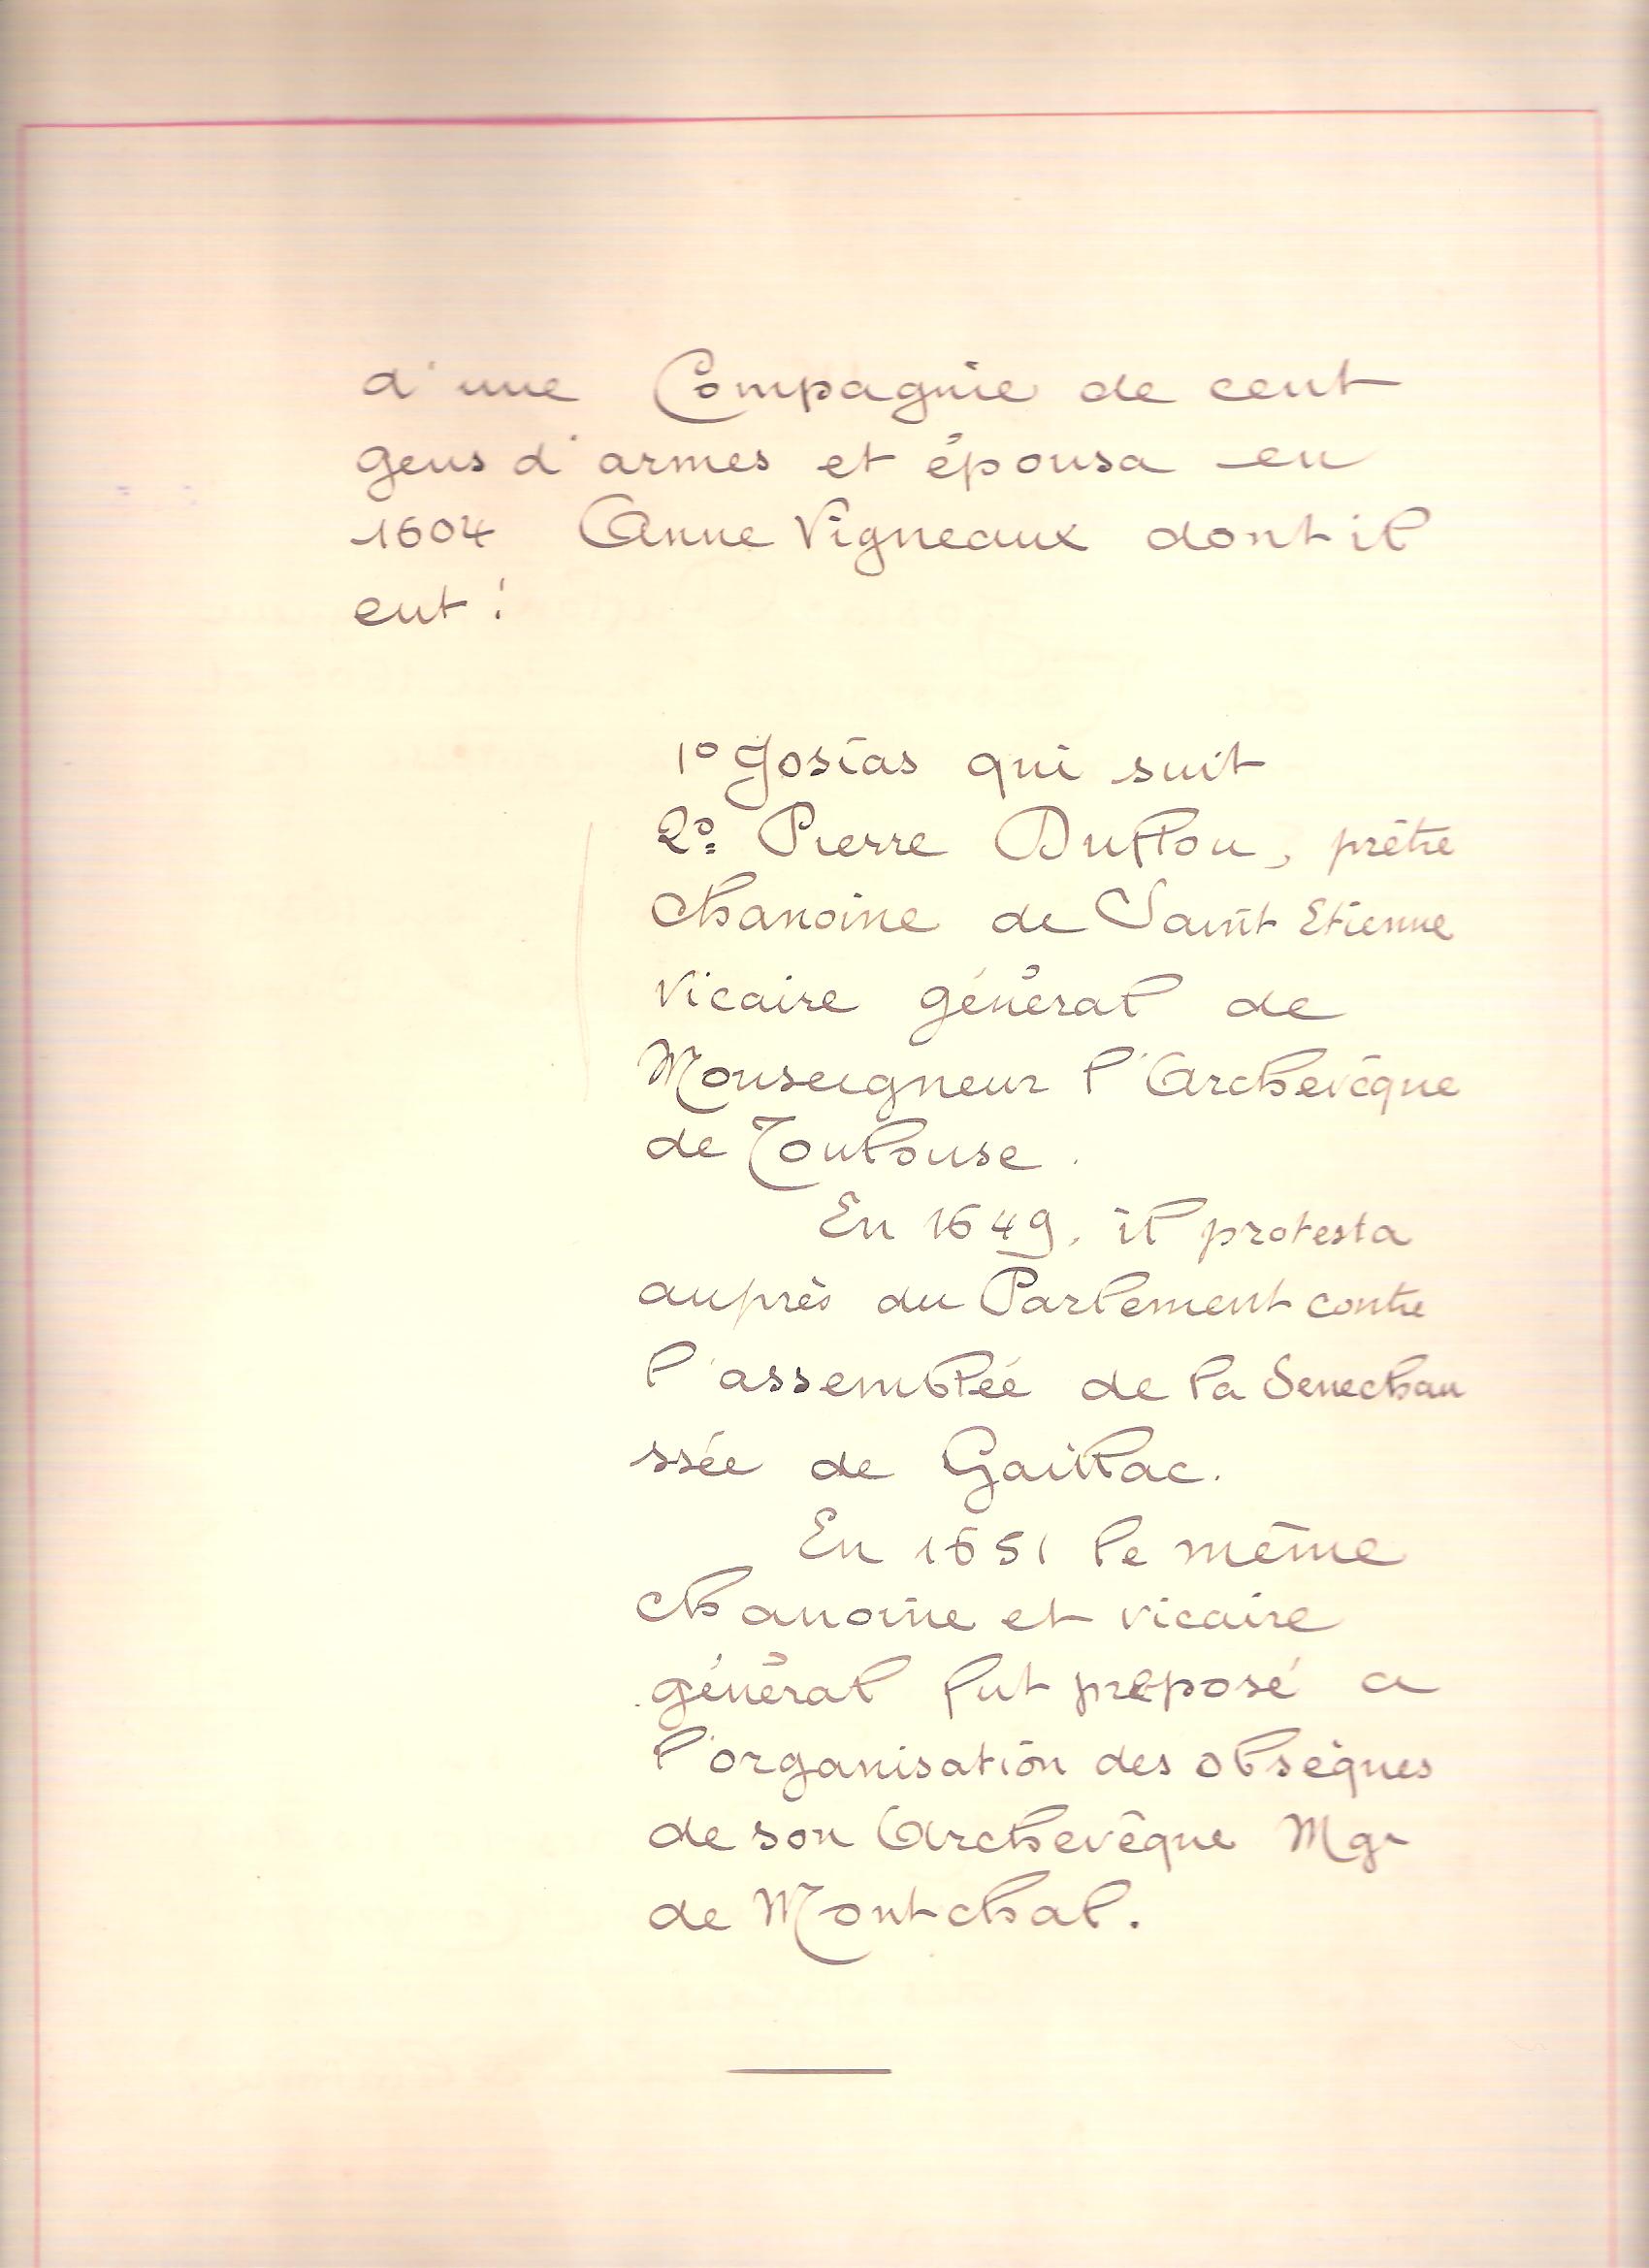 d'une Compagnie de cent
gens d'armes et épousa en
1604 Anne Vigneaux dont il
eut :
1º Josias qui suit
2º Pierre Duffou, prêtre
chanoine de Saint Etienne
Vicaire général de
Monseigneur l'Archevêque
de Toulouse.
En 1649, il protesta
auprès du Parlement contre
l'assemblée de la Senechau
ssée de Gaillac.
En 1651 le même
chanoine et vicaire
général fut préposé a
l'organisation des obsèques
de son Archevêque Mgr
de Montchal.